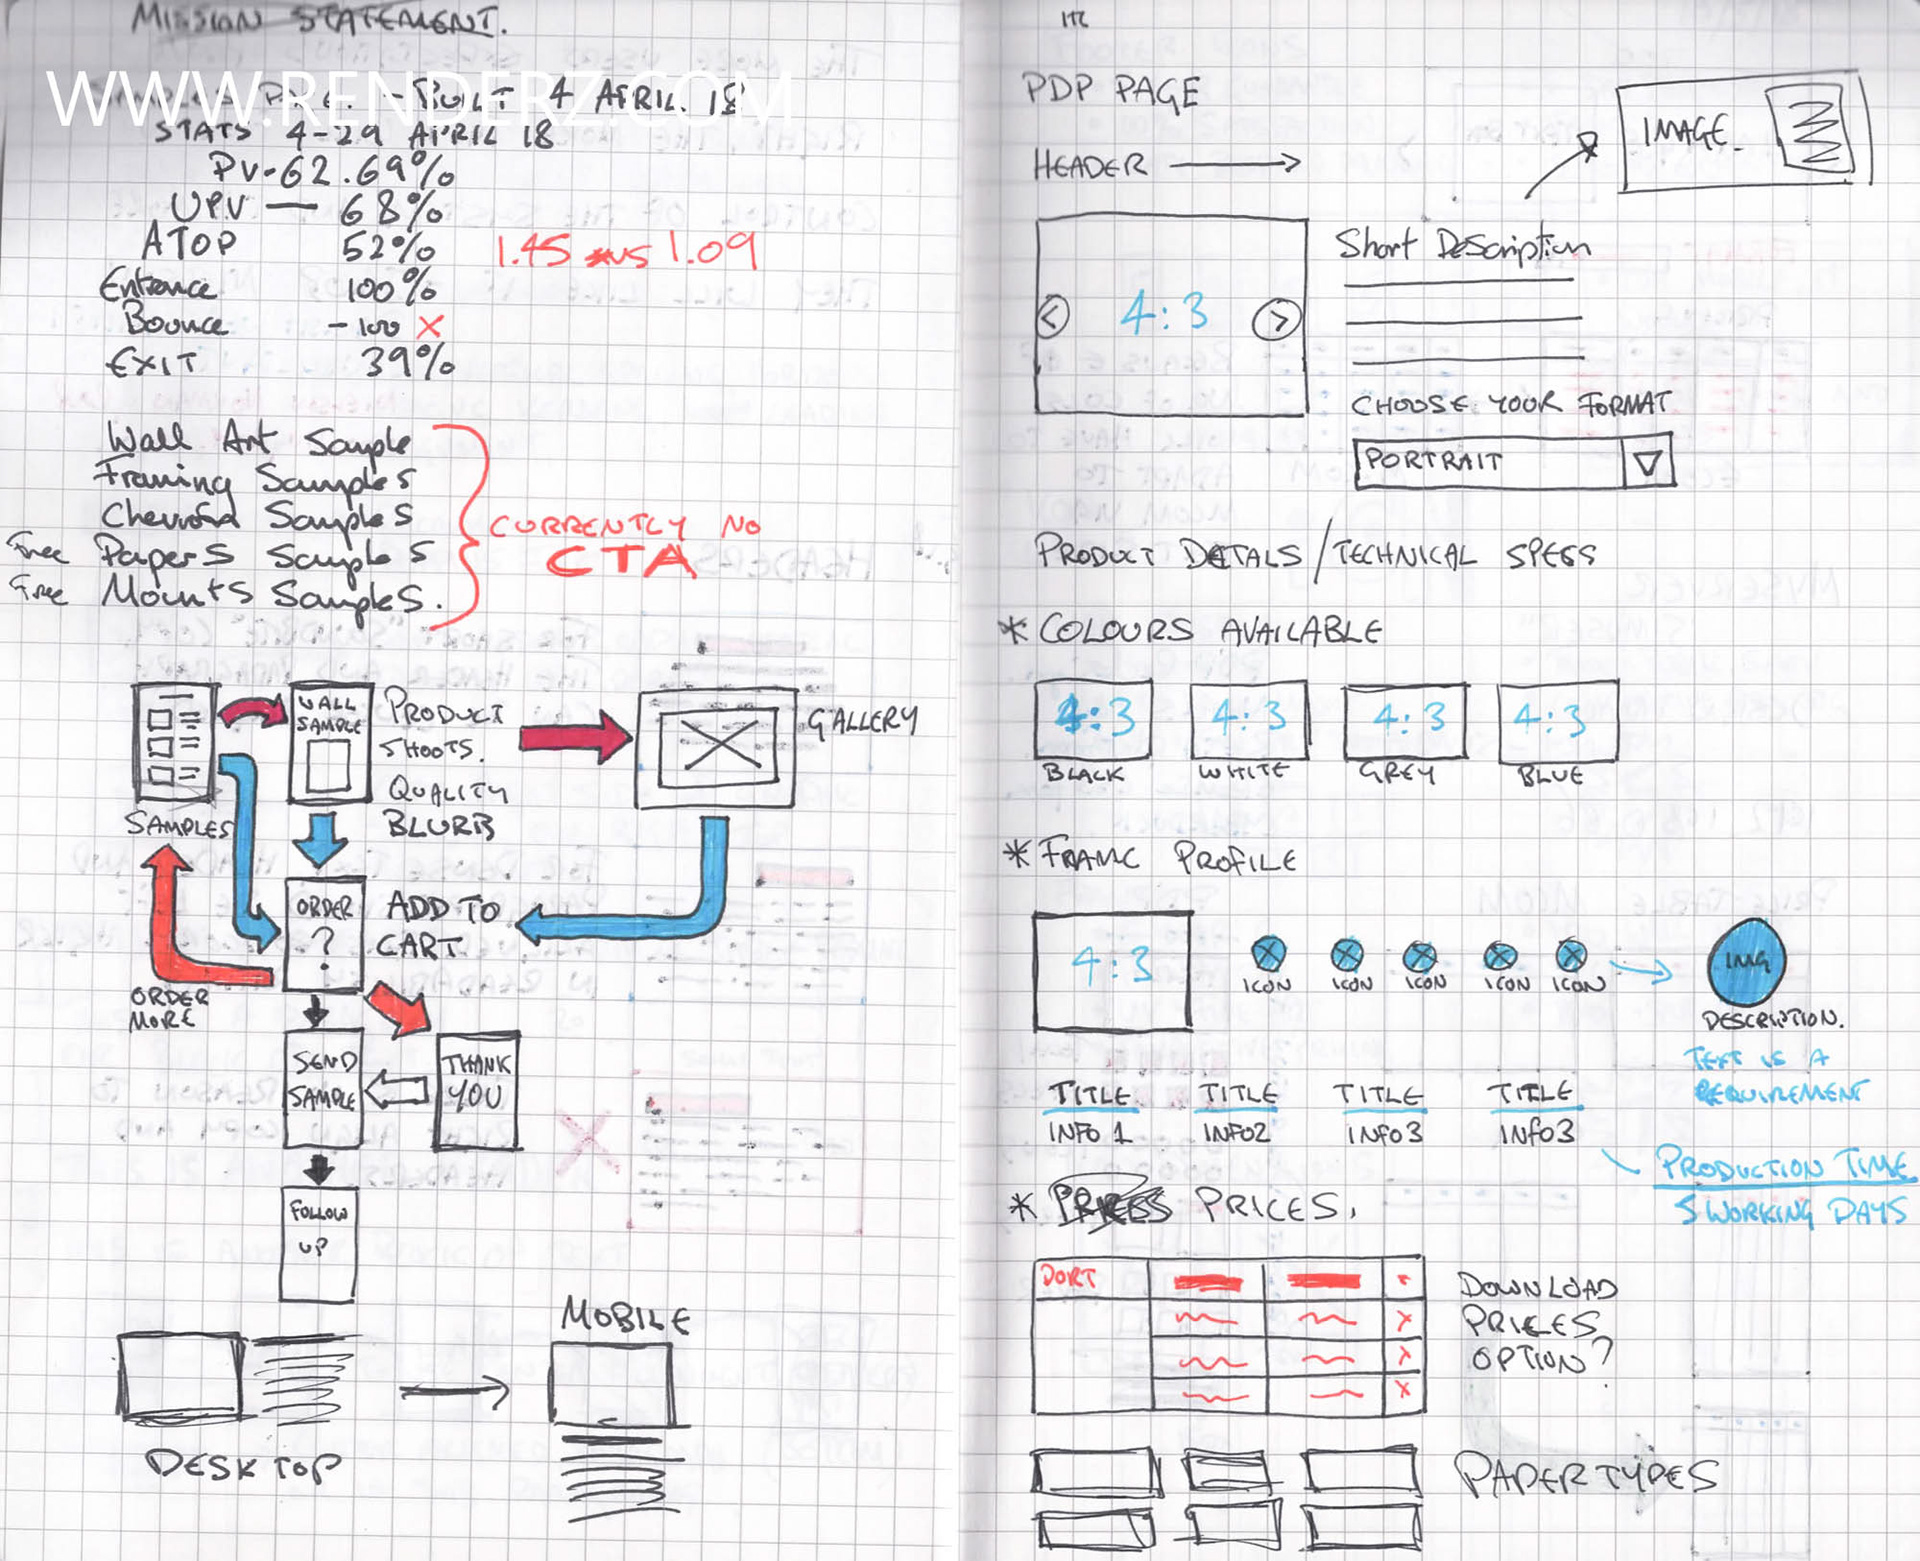 MISSION STATEMENT.
WWW.RENDERZ.COM
BUILT 4 APRIL. 18
STATS 4-29 APRIL 18
PV-62.69%
UPV — 68%
ATOP 52% 1.45 vs 1.09
Entrance 100%
Bounce -100 X
EXIT 39%
Wall Art Sample
Framing Samples
Samples
Free Papers Samples
Free Mounts Samples.
CURRENTLY NO
CTA
WALL
SAMPLE
PRODUCT
SHOOTS.
QUALITY
BLURB
GALLERY
SAMPLES
ORDER
?
ADD TO
CART
ORDER
MORE
SEND
SAMPLE
THANK
YOU
FOLLOW
UP
DESKTOP
MOBILE
PDP PAGE
HEADER
IMAGE
< 4:3 >
Short Description
CHOOSE YOUR FORMAT
PORTRAIT
PRODUCT DETALS/TECHNICAL SPECS
* COLOURS AVAILABLE
4:3 4:3 4:3 4:3
BLACK WHITE GREY BLUE
* FRAME PROFILE
4:3
ICON ICON ICON ICON ICON
IMG
DESCRIPTION.
TEXT IS A
REQUIREMENT
TITLE TITLE TITLE TITLE
INFO 1 INFO2 INFO3 INFO3
PRODUCTION TIME
5 WORKING DAYS
* PRICES.
DORT
DOWNLOAD
PRICES
OPTION?
PAPER TYPES